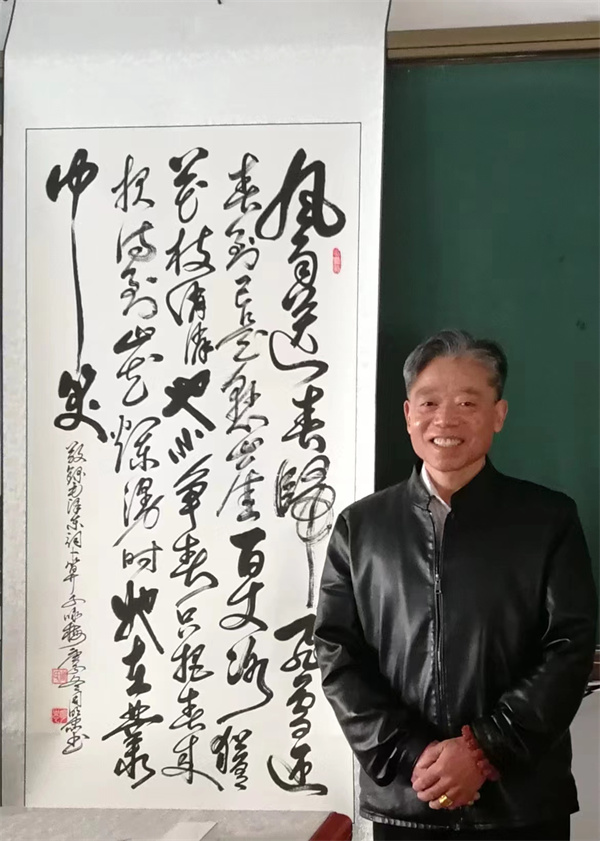 風雨送春歸飛雪迎
春到已是懸崖百丈冰猶有
花枝俏俏也不争春只把春来
报待到山花爛漫時她在叢
中笑
敬録毛泽东词卜算子咏梅